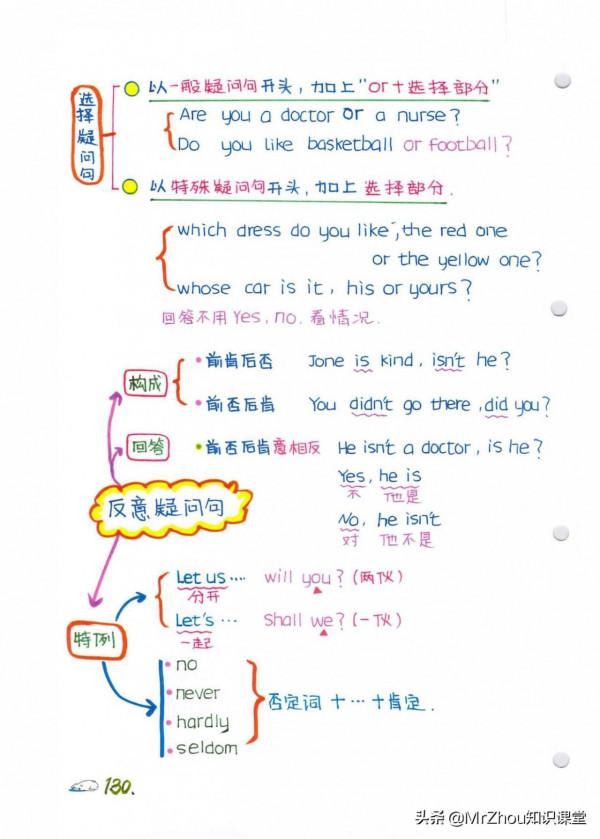 选择疑问句
以一般疑问句开头，加上“or＋选择部分”
Are you a doctor or a nurse?
Do you like basketball or football?
以特殊疑问句开头，加上选择部分.
which dress do you like, the red one
or the yellow one?
whose car is it, his or yours?
回答不用Yes, no. 看情况.
构成
前肯后否 Jone is kind, isn't he?
前否后肯 You didn't go there, did you?
回答
前否后肯意相反 He isn't a doctor, is he?
Yes, he is
不 他是
No, he isn't
对 他不是
反意疑问句
特例
Let us .... will you? (两伙)
分开
Let's ... Shall we? (一伙)
一起
no
never
hardly
seldom
否定词＋…＋肯定.
130.
头条 @MrZhou知识课堂